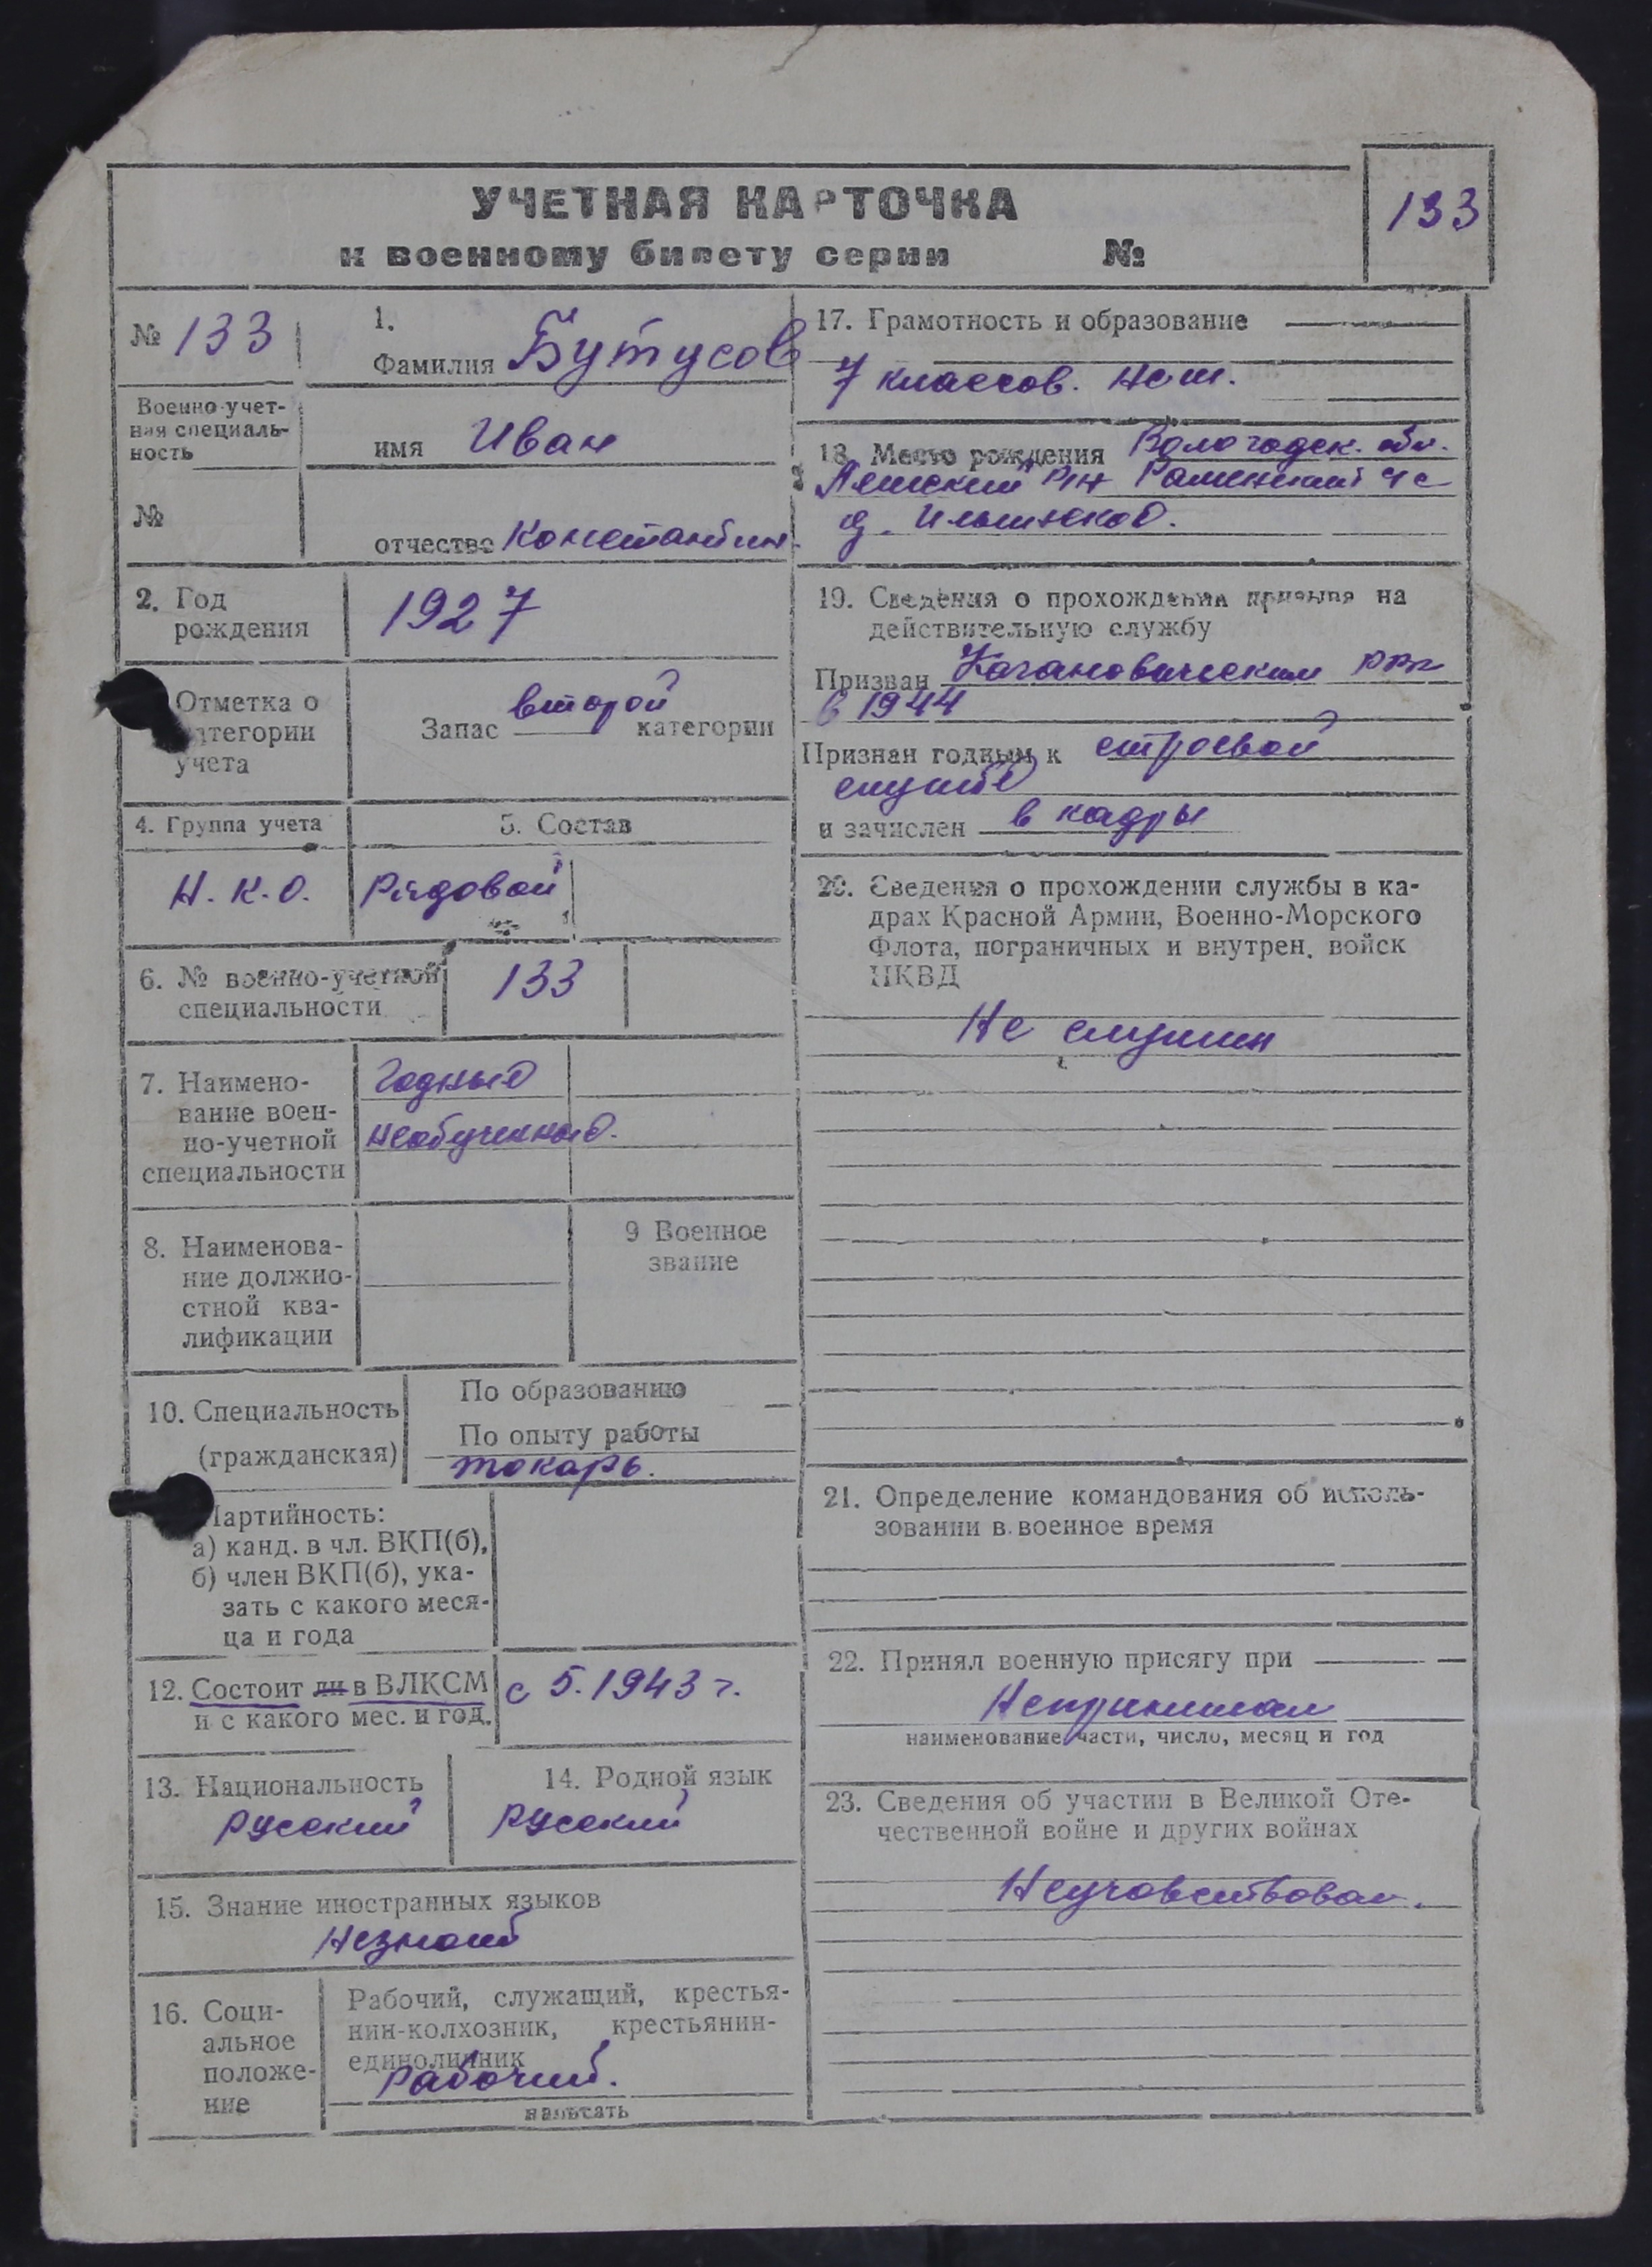 УЧЕТНАЯ КАРТОЧКА
к военному билету серии №
133
№ 133
1.
Фамилия Бутусов
Военно-учет-
ная специаль-
ность
имя Иван
№
отчество Константин.
2. Год
рождения
1927
Отметка о
категории
учета
Запас второй категории
4. Группа учета
5. Состав
Н.К.О.
Рядовой
6. № военно-учетной
специальности
133
7. Наимено-
вание воен-
но-учетной
специальности
Годный
необученный.
8. Наименова-
ние должно-
стной ква-
лификации
9 Военное
звание
10. Специальность
(гражданская)
По образованию
По опыту работы
токарь.
Партийность:
а) канд. в чл. ВКП(б),
б) член ВКП(б), ука-
зать с какого меся-
ца и года
12. Состоит ли в ВЛКСМ
и с какого мес. и год.
с 5.1943 г.
13. Национальность
русский
14. Родной язык
русский
15. Знание иностранных языков
Незнает
16. Соци-
альное
положе-
ние
Рабочий, служащий, крестья-
нин-колхозник, крестьянин-
единоличник
Рабочий.
написать
17. Грамотность и образование
7 классов. Нсш.
18. Место рождения Вологодск. обл.
р-н Раменский с
д.
19. Сведения о прохождении призыва на
действительную службу
Призван Кагановическим РВК
в 1944
Признан годным к строевой
службе
и зачислен в кадры
20. Сведения о прохождении службы в ка-
драх Красной Армии, Военно-Морского
Флота, пограничных и внутрен. войск
НКВД
Не служил
21. Определение командования об исполь-
зовании в военное время
22. Принял военную присягу при
Непринимал
наименование части, число, месяц и год
23. Сведения об участии в Великой Оте-
чественной войне и других войнах
Неучавствовал.